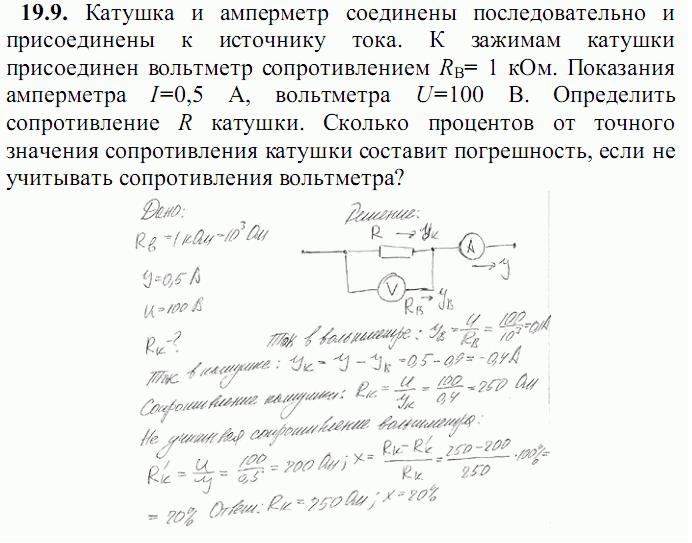 19.9. Катушка и амперметр соединены последовательно и
присоединены к источнику тока. К зажимам катушки
присоединен вольтметр сопротивлением RВ= 1 кОм. Показания
амперметра I=0,5 А, вольтметра U=100 В. Определить
сопротивление R катушки. Сколько процентов от точного
значения сопротивления катушки составит погрешность, если не
учитывать сопротивления вольтметра?
Дано:
Решение:
Rв = 1 кОм = 10³ Ом
R → Yк
A
→ Y
Y = 0,5 А
V
Rв → Yв
U = 100 В
Rк - ?
Ток в вольтметре: Yв = U/Rв = 100/10³ = 0,1А
Ток в катушке: Yк = Y - Yв = 0,5 - 0,1 = 0,4 А
Сопротивление катушки: Rк = U/Yк = 100/0,4 = 250 Ом
Не учитывая сопротивление вольтметра:
R'к = U/Y = 100/0,5 = 200 Ом; x = Rк - R'к/Rк = 250 - 200/250 · 100% =
= 20% Ответ: Rк = 250 Ом; x = 20%